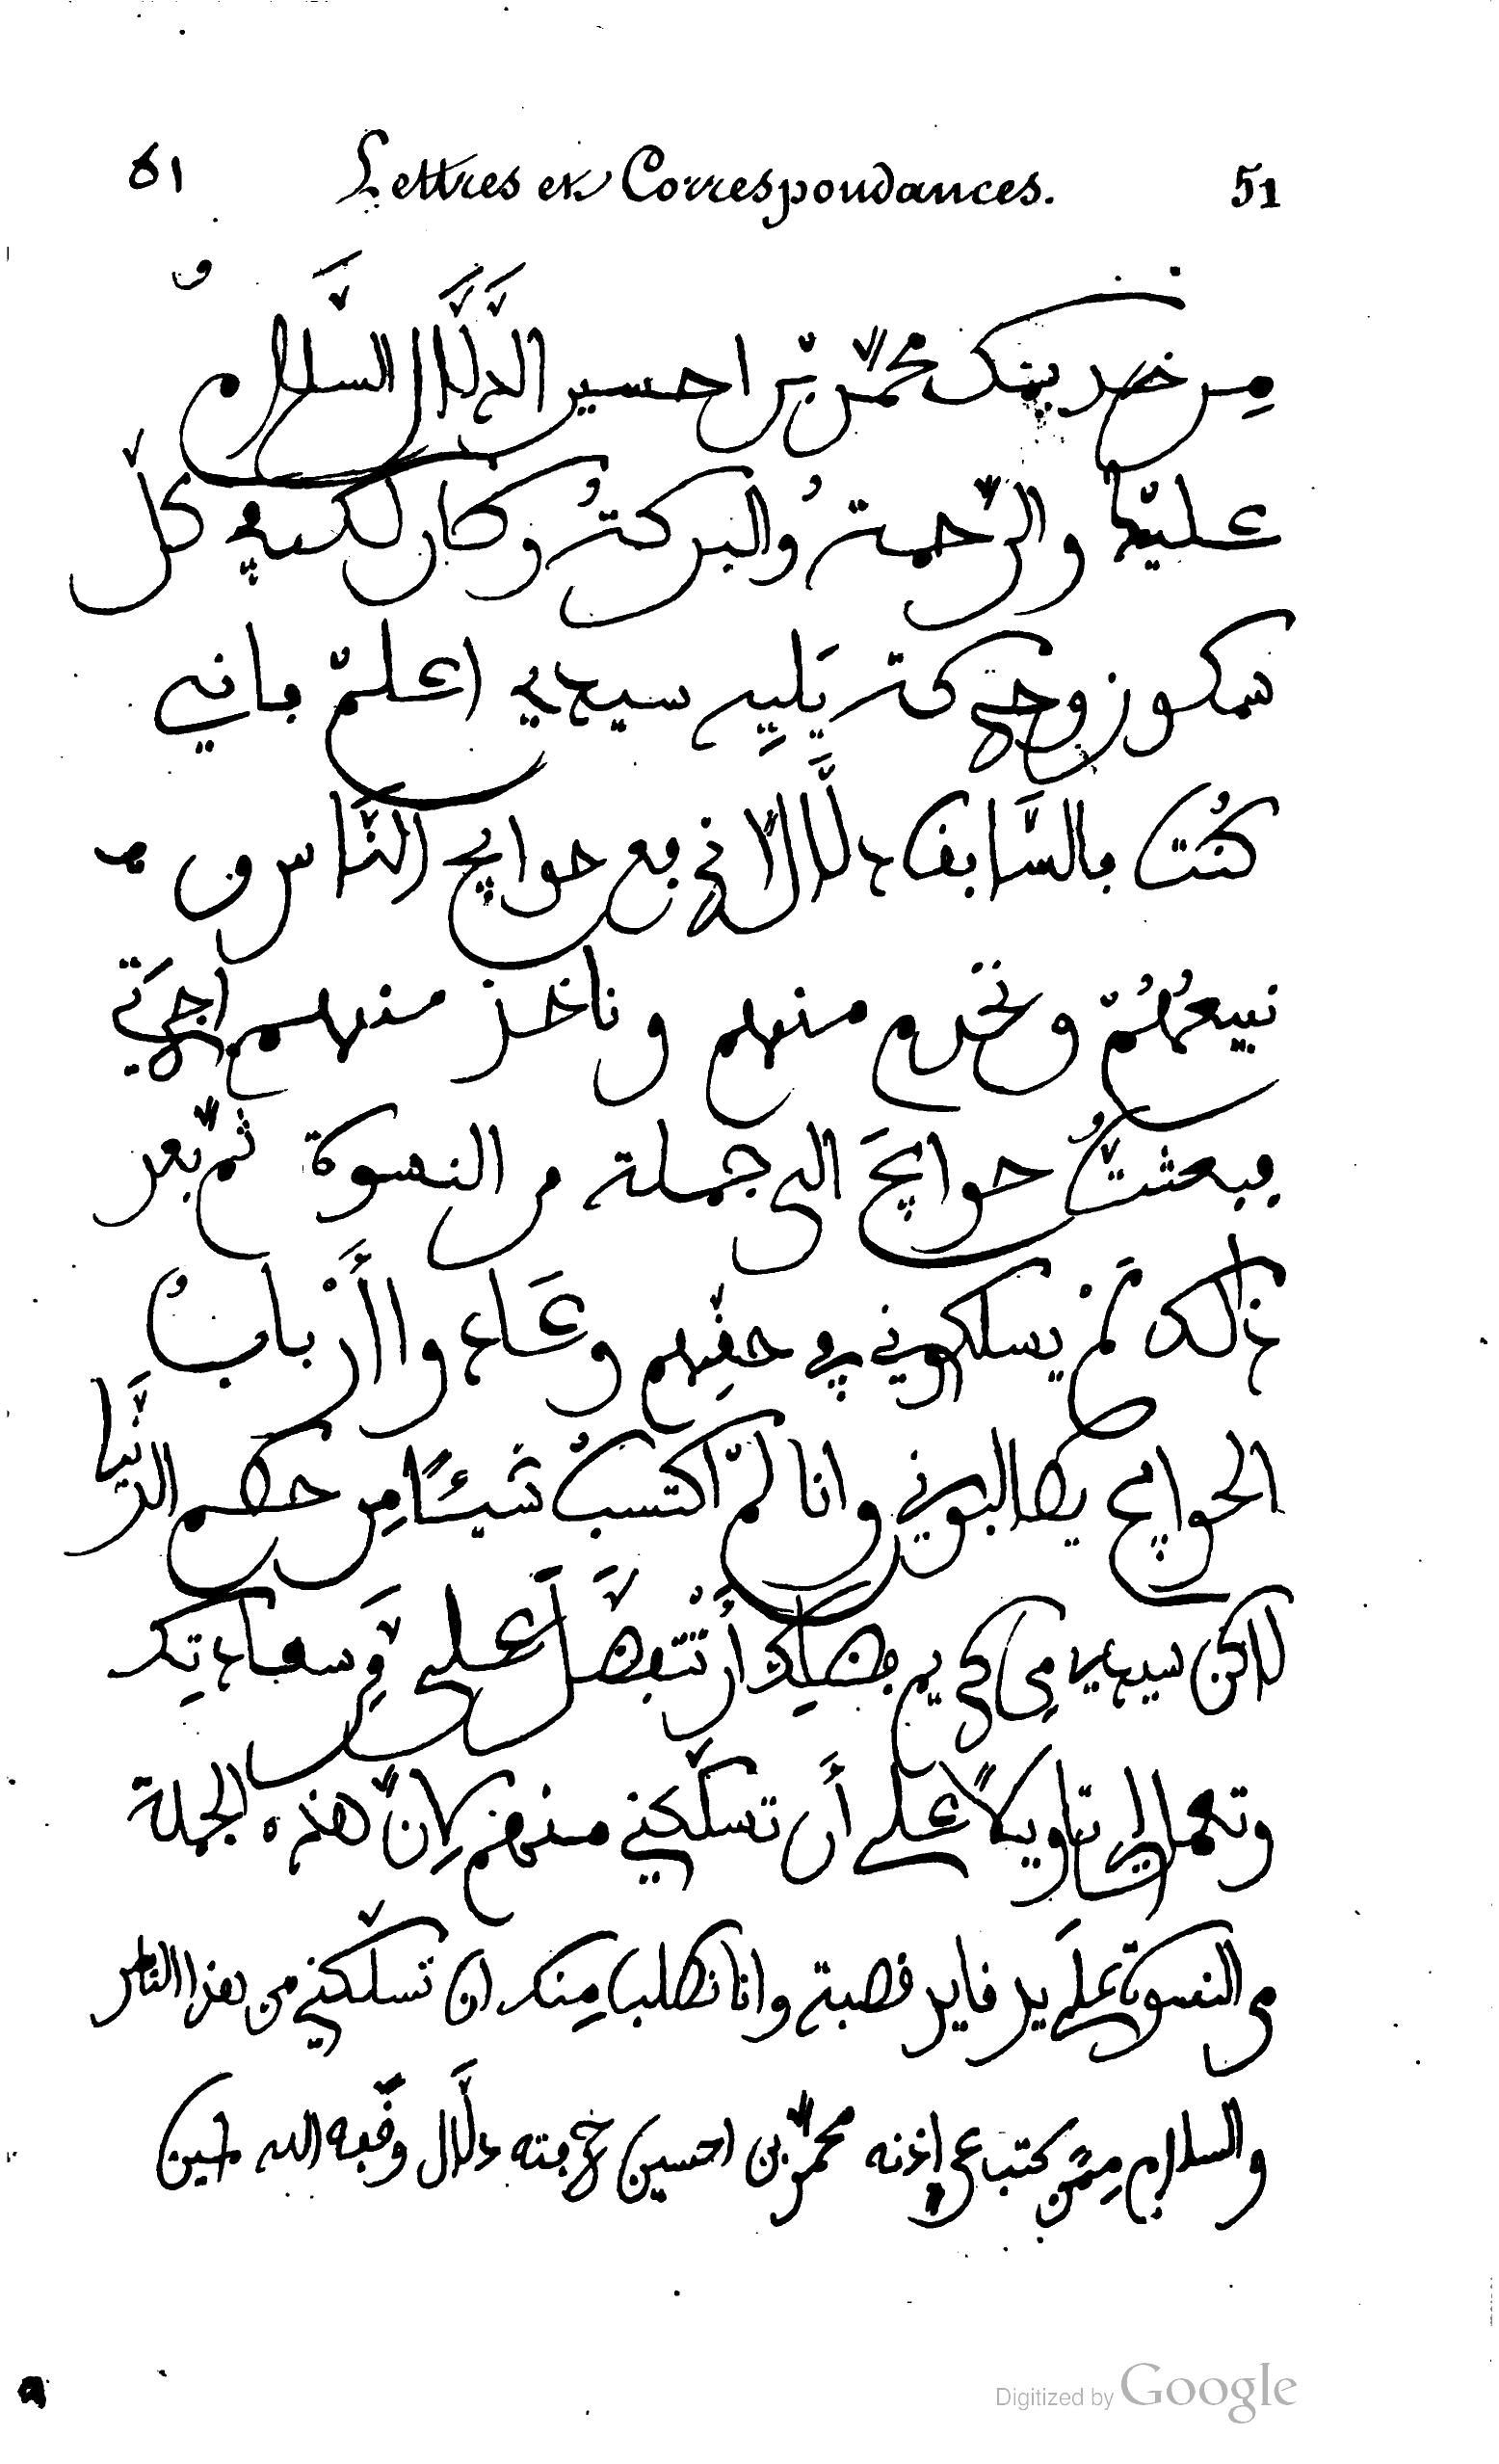 51 Lettres et Correspondances. ٥١
مِن خديمك محمّد بن احسين الدلَّال السَّلامُ
عليكم والرّحمةُ والبركةُ وكان لكم في كلّ
سكون وحركة يَلِيه سيدي اعلمّ باني
كُنت بالسَّابق دلَّالاً نرفع حوايج النَّاس و
نبيعهُمُ ونخدم منهم وناخذ منهم اجرتي
فبعثتُ حوايجَ الى جملة من النسوة ثم بعد
ذالك لم يسلكوني في حقهم وعَادوا أَرْبابُ
الحوايج يطالبوني وانا لم اكتسبْ شيئًا مِن حطم الدنيا
لاكن سيدي من كريم فضلِك أن تتفضَّلَ علي وسعادتِك
وتعمل لي تاويلاً على أن تسلّكني منهم لانّ هذه الجملة
من النسوة على يد قايد قصبة وانا نطلب مِنك ان تسلّكني من هذا الناس
والسلام مِمَّن كتب عن إذنه محمّد بن احسين حرفته دلَّال وفّقه الله امين
Digitized by Google